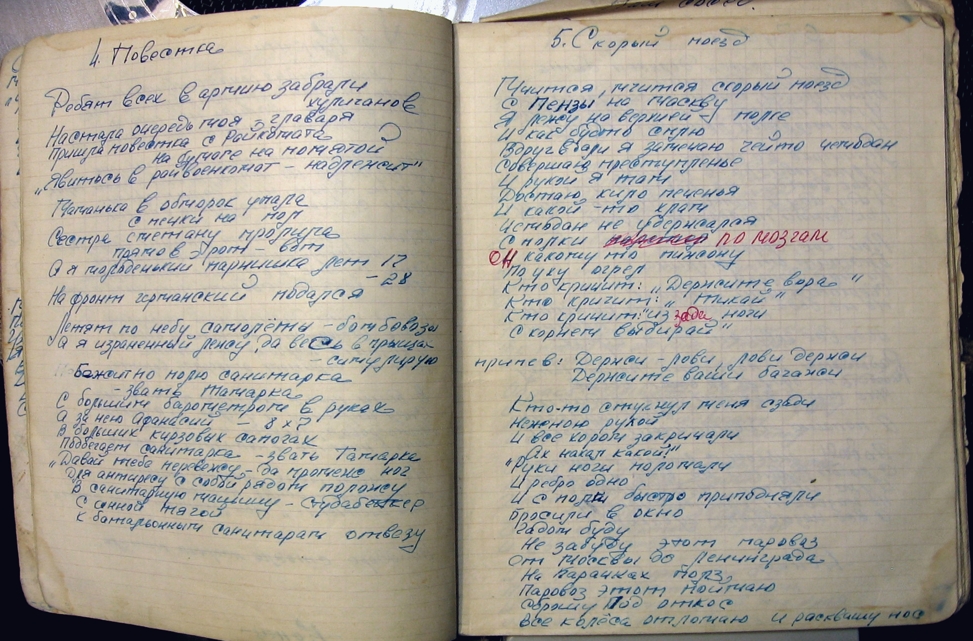 4. Повестка
Ребят всех в армию забрали
хулиганов
Настала очередь моя, главаря
Пришла повестка с Райкомата
на бумаге на помятой
„Явитось в райвоенкомат - надлежит"
Маманька в обморок упала
с печки на пол
Сестра сметану пролила
прямо в рот - вот
А я молоденький парнишка лет 17
- 28
На фронт германский подался
Летят по небу самолёты - бомбовозы
А я израненный лежу, да весь в прыщах
- симулирую
Бежит по полю санитарка
- звать Тамарка
С большим барометром в руках
А за нею Афанасий - 8 х 7
В больших кирзовых сапогах
Подбегает санитарка - звать Тамарка
„Давай тебе перевежу - да промеж ног
Для антиресу с собой рядом положу
В санитарную машину - студабеккер
С конной тягой
К батальонным санитарам отвезу
5. Скорый поезд
Мчится, мчится скорый поезд
С Пензы на Маскву
Я лежу на верхней полке
И как будто сплю
Вдруг вдали я замечаю чейто чемодан
Совершаю преступленье
И рукой я там
Достаю кило печенья
И какой-то хлам
Чемодан не удержался
С полки по мозгам
ОН какому то пижону
По уху огрел
Кто кричит: „Держите вора"
Кто кричит: „Тикай"
Кто кричит: "из зади ноги
С корнем выдирай"
припев: Держи-лови, лови держи
Держите ваши багажи
Кто-то стукнул меня сзади
Нежною рукой
И все хором закричали
„Ах нахал какой!"
"Руки ноги поломали
И ребро одно
И с полки быстро приподняли
Бросили в окно
Гадом буду
Не забуду этот паровоз
От Москвы до Ленинграда
На карачках полз
Паровоз этот поймаю
Сброшу под откос
Все колёса отломаю и расквашу нос